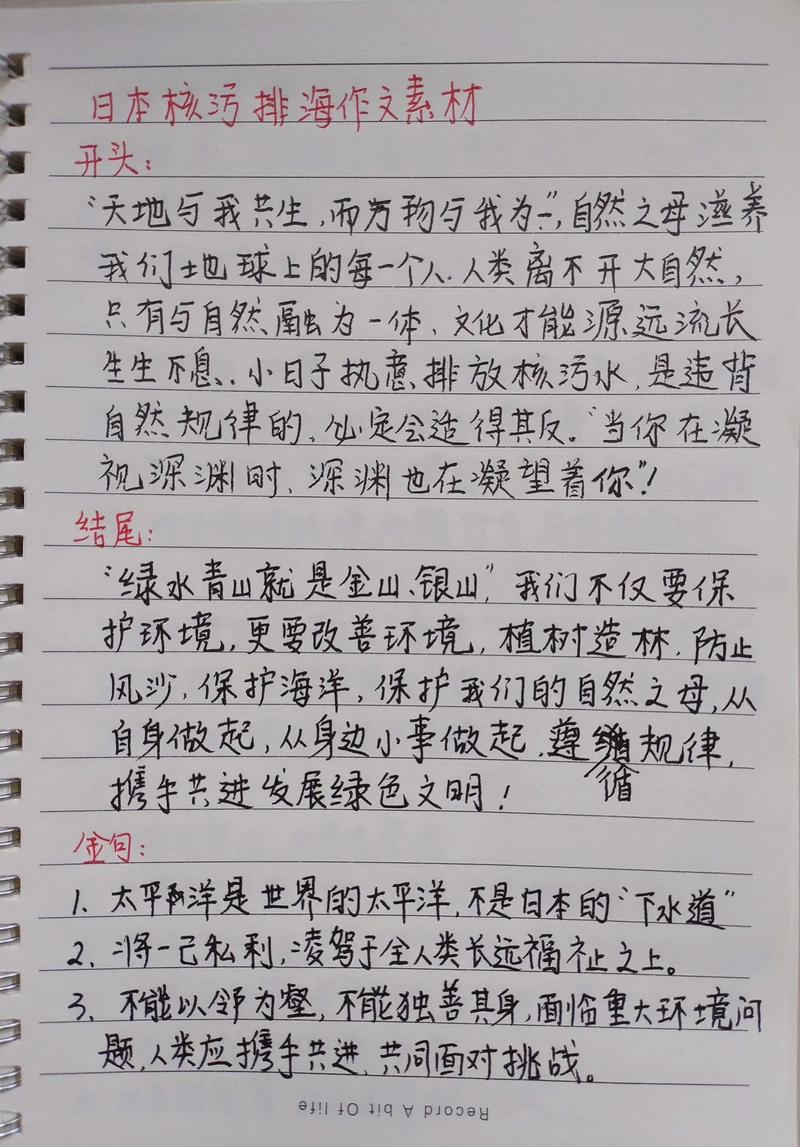 日本核污排海作文素材
开头:
“天地与我共生,而万物与我为一”,自然之母滋养
我们土地球上的每一个人.人类离不开大自然,
只有与自然融为一体、文化才能源远流长
生生不息、小日子执意排放核污水,是违背
自然规律的,必定会适得其反。“当你在凝
视深渊时、深渊也在凝望着你”!
结尾:
“绿水青山就是金山、银山”,我们不仅要保
护环境,更要改善环境,植树造林.防止
风沙,保护海洋,保护我们的自然之母,从
自身做起,从身边小事做起.遵循规律,
携手共进发展绿色文明!
金句:
1、太平洋是世界的太平洋,不是日本的“下水道”
2、将一己私利,凌驾于全人类长远福祉之上。
3、不能以邻为壑,不能独善其身,面临重大环境问
题,人类应携手共进.共同面对挑战。
Record A bit Of life